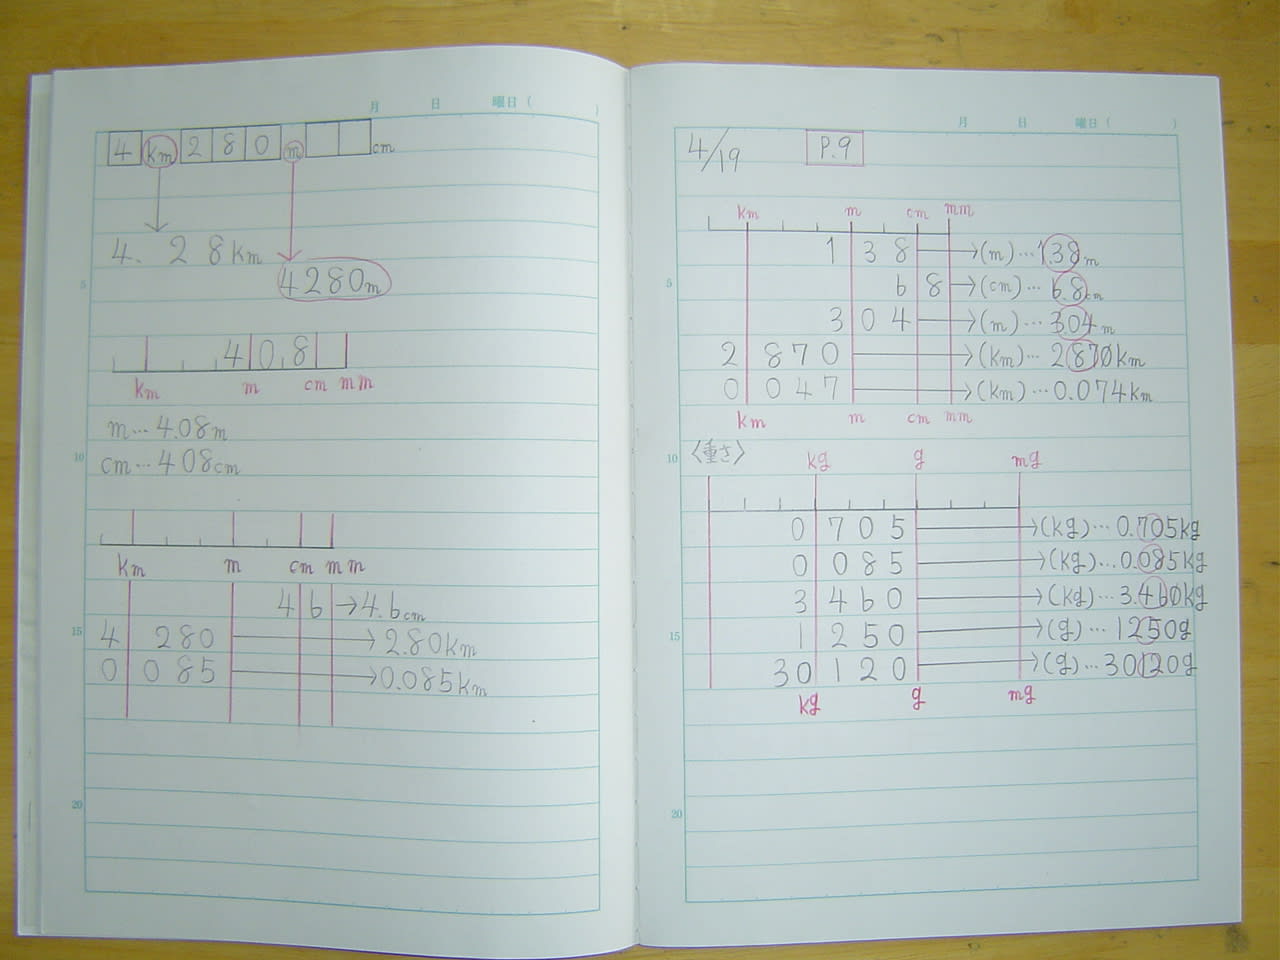 月 日 曜日 ( )
4 km 2 8 0 m cm
4. 2 8 km
4280m
5
4 0 8
km m cm mm
m…4.08m
cm…408cm
10
km m cm mm
4 6 →4.6cm
15
4 280 →2.80km
0 085 →0.085km
20
月 日 曜日 ( )
4/19 P.9
km m cm mm
1 38 →(m)…1.38m
5
6 8 →(cm)…6.8cm
3 04 →(m)…3.04m
2 870 →(km)…2870km
0 047 →(km)…0.074km
km m cm mm
10
〈重さ〉 kg g mg
0 705 →(kg)…0.705kg
0 085 →(kg)…0.085kg
3 460 →(kg)…3.460kg
15
1 250 →(g)…1250g
30 120 →(g)…30120g
kg g mg
20